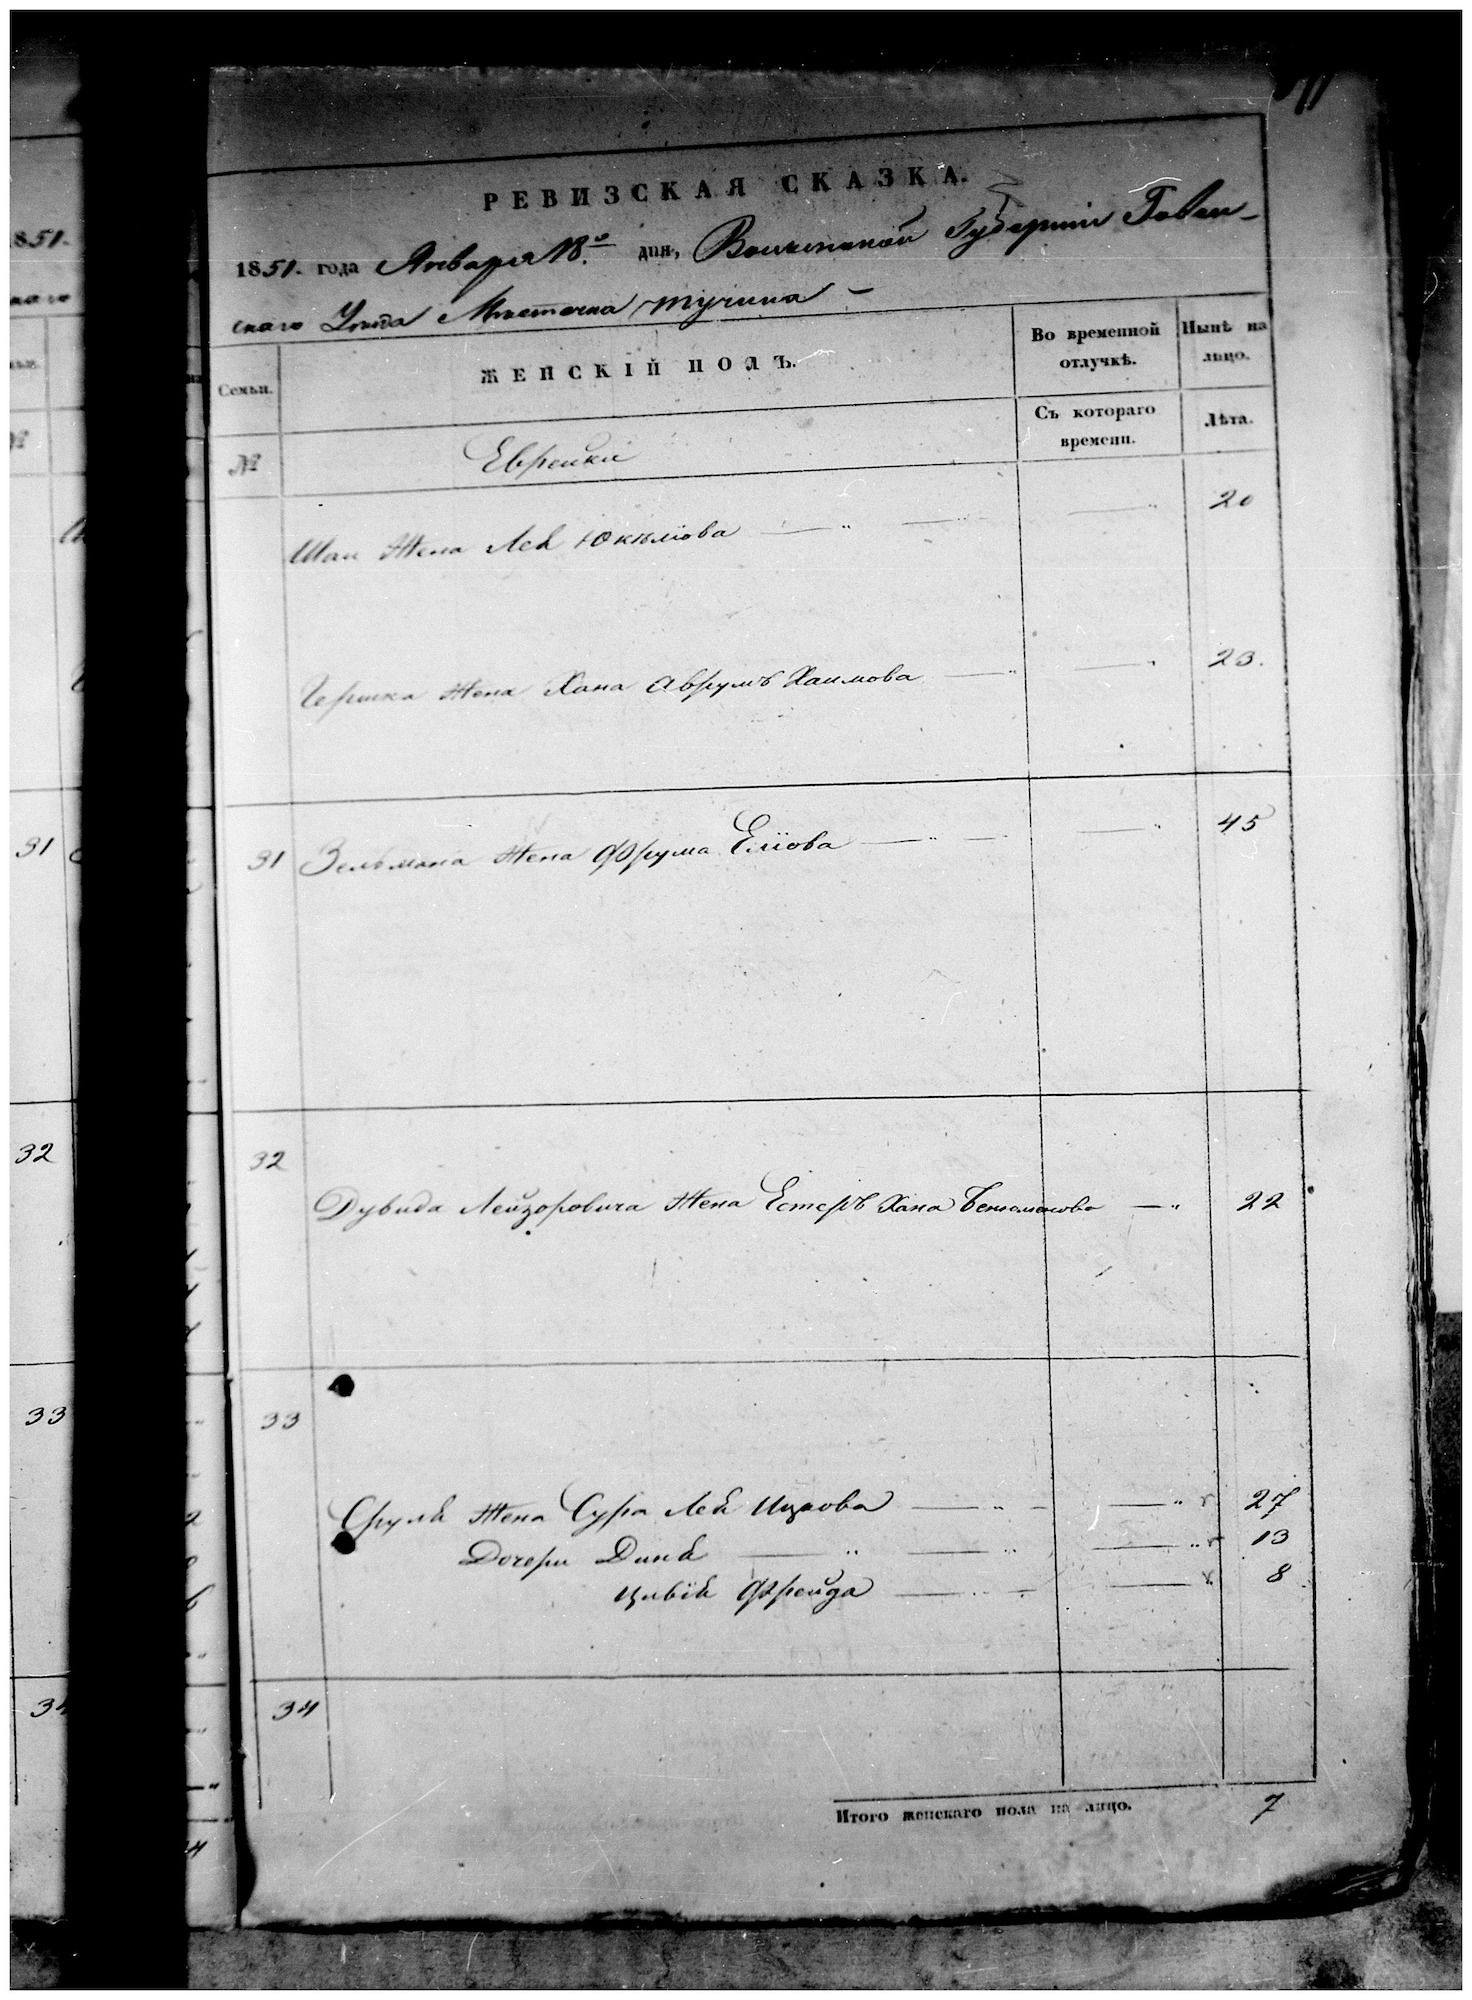 11
РЕВИЗСКАЯ СКАЗКА.
1851. года Января 18.го дня, Волынской Губернии Ровен-
скаго Уезда Местечка Тучина —
Семьи.
ЖЕНСКІЙ ПОЛЪ.
Во временной отлучкѣ.
Нынѣ на лицо.
№
Еврейки
Съ котораго времени.
Лѣта.
Жена Леа 20
Жена Хана Аврумъ Хаимова 23.
31 Зельмана Жена Фрума Еліова 45
32
Дувида Лейзоровича Жена Естеръ Хана Бенюминова 22
33
Сруля Жена Сура Леа Ицкова 27
Дочери Дина 13
Цивія Фрейда 8
34
Итого женскаго пола на лицо. 7
851.
31
32
33
34